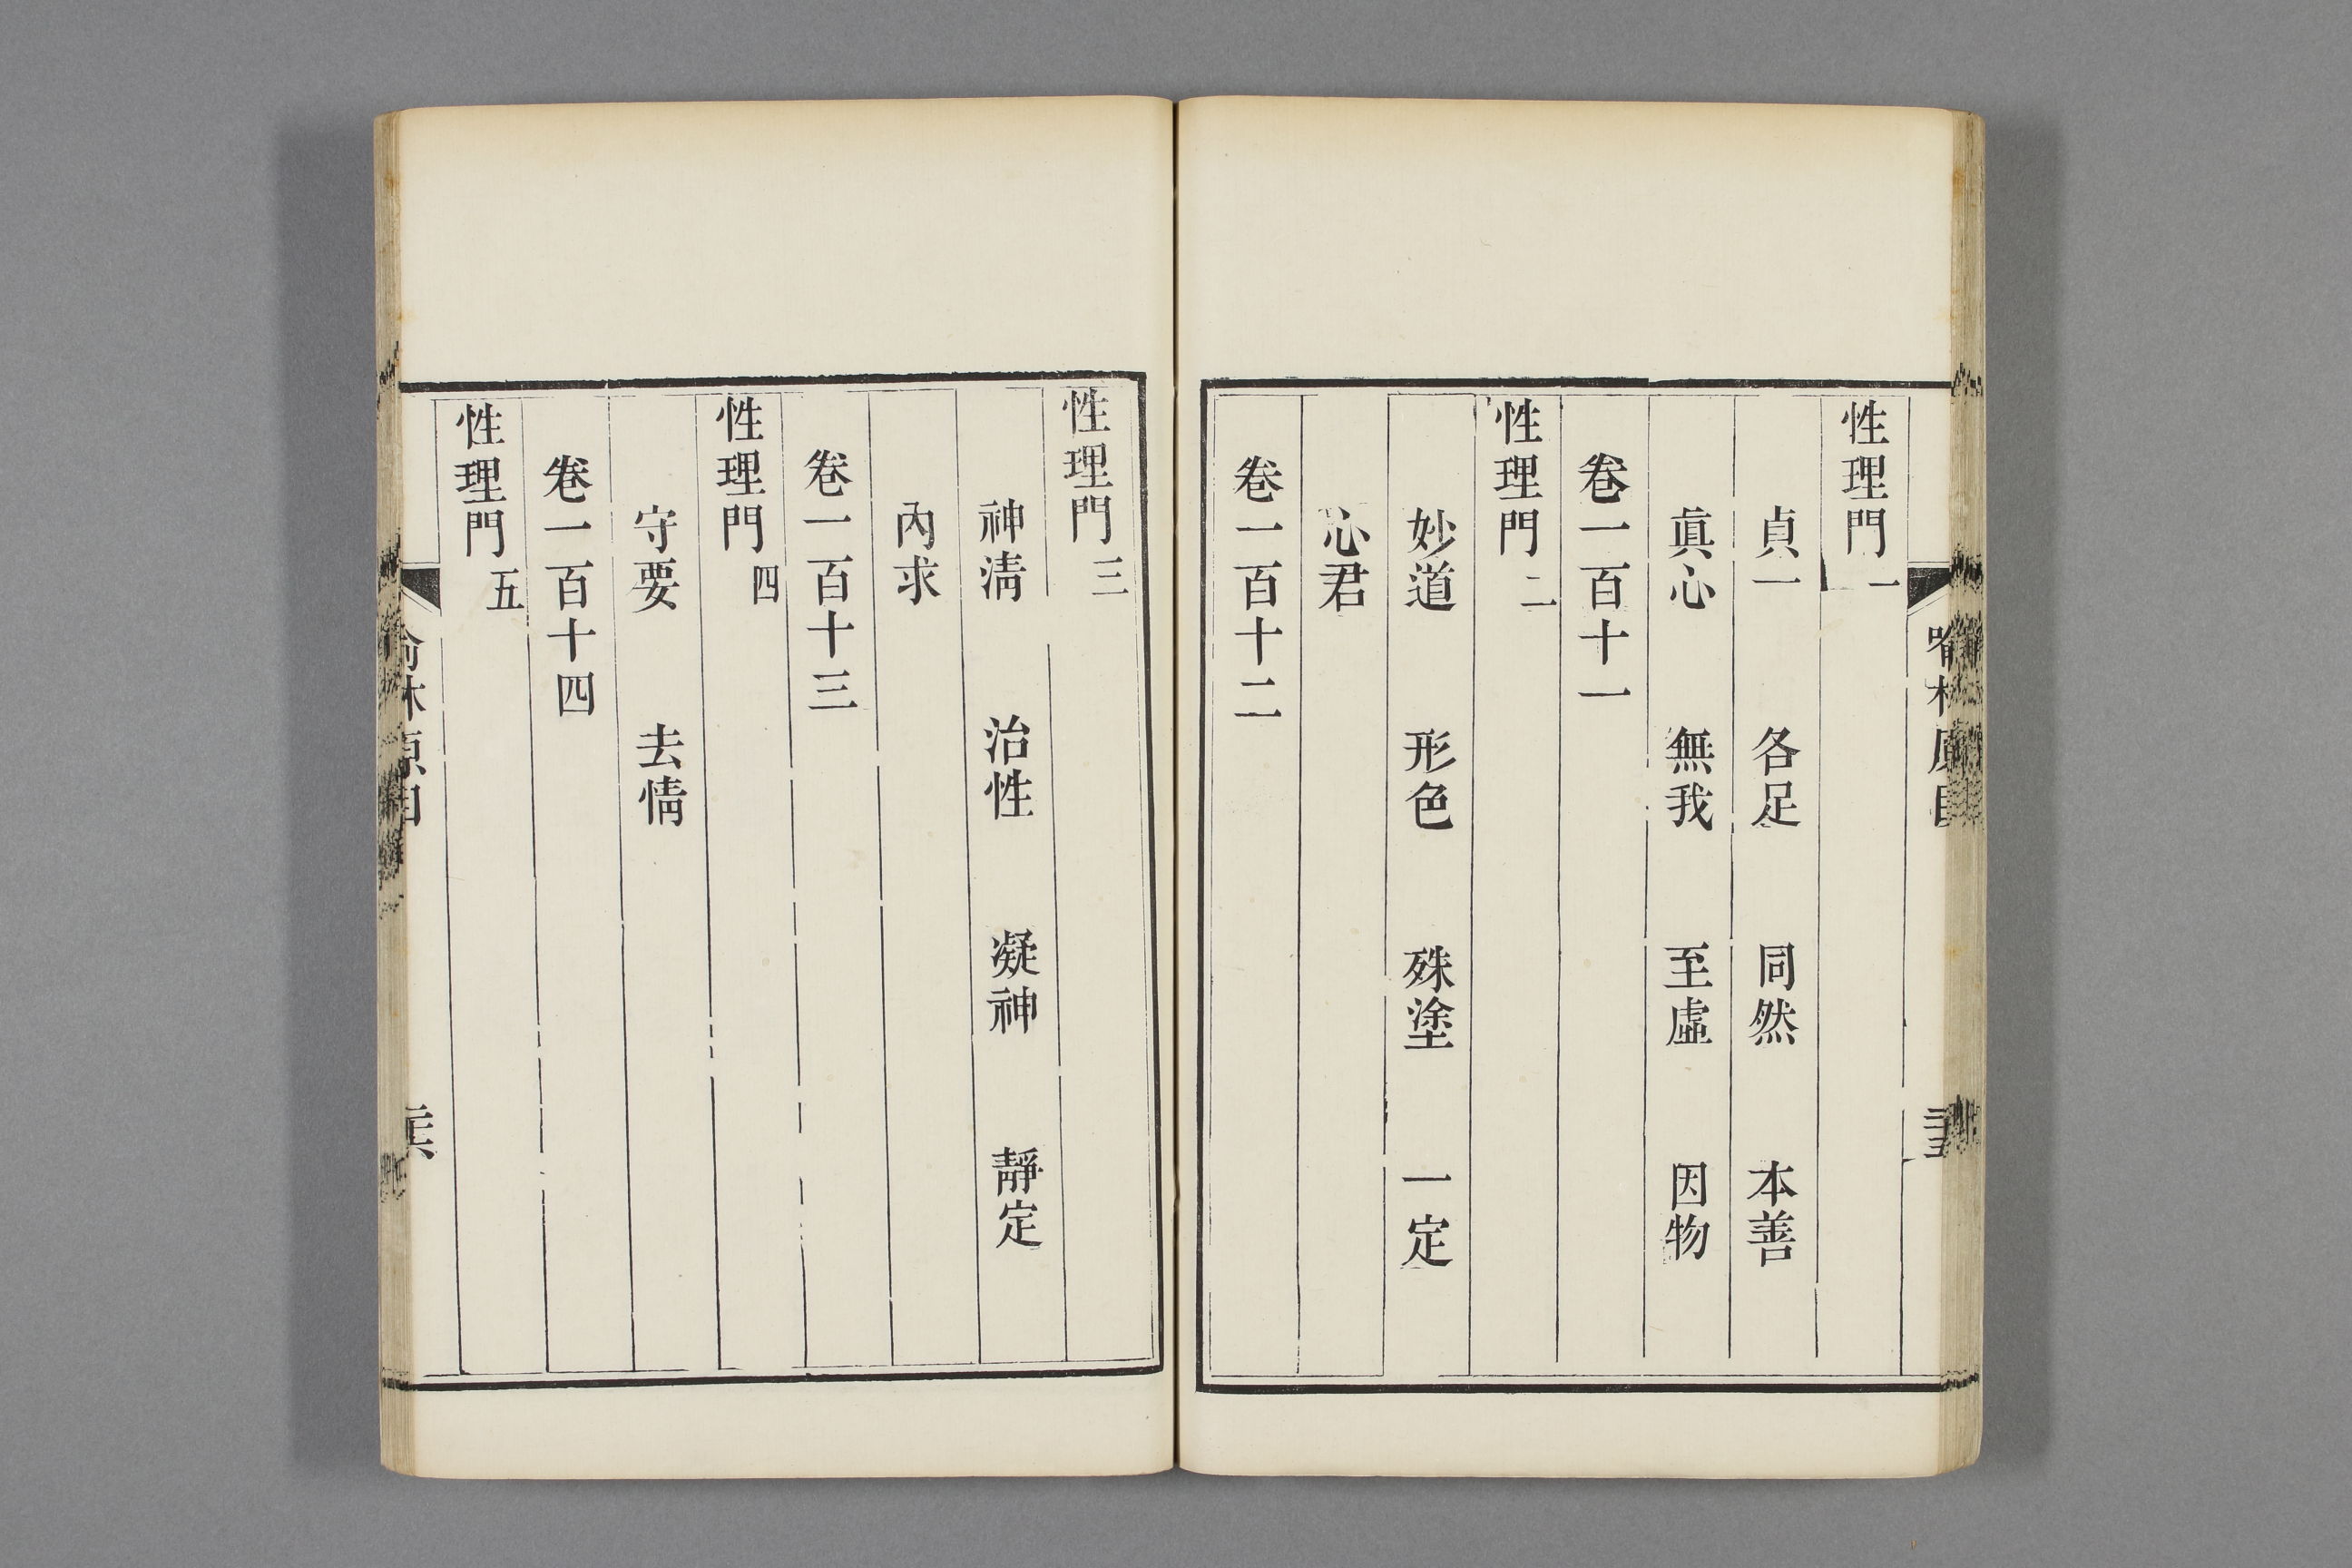 性理門一
貞一　各足　同然　本善
眞心　無我　至虛　因物
卷一百十一
性理門二
妙道　形色　殊塗　一定
心君
卷一百十二
性理門三
神淸　治性　凝神　靜定
內求
卷一百十三
性理門四
守要　去情
卷一百十四
性理門五